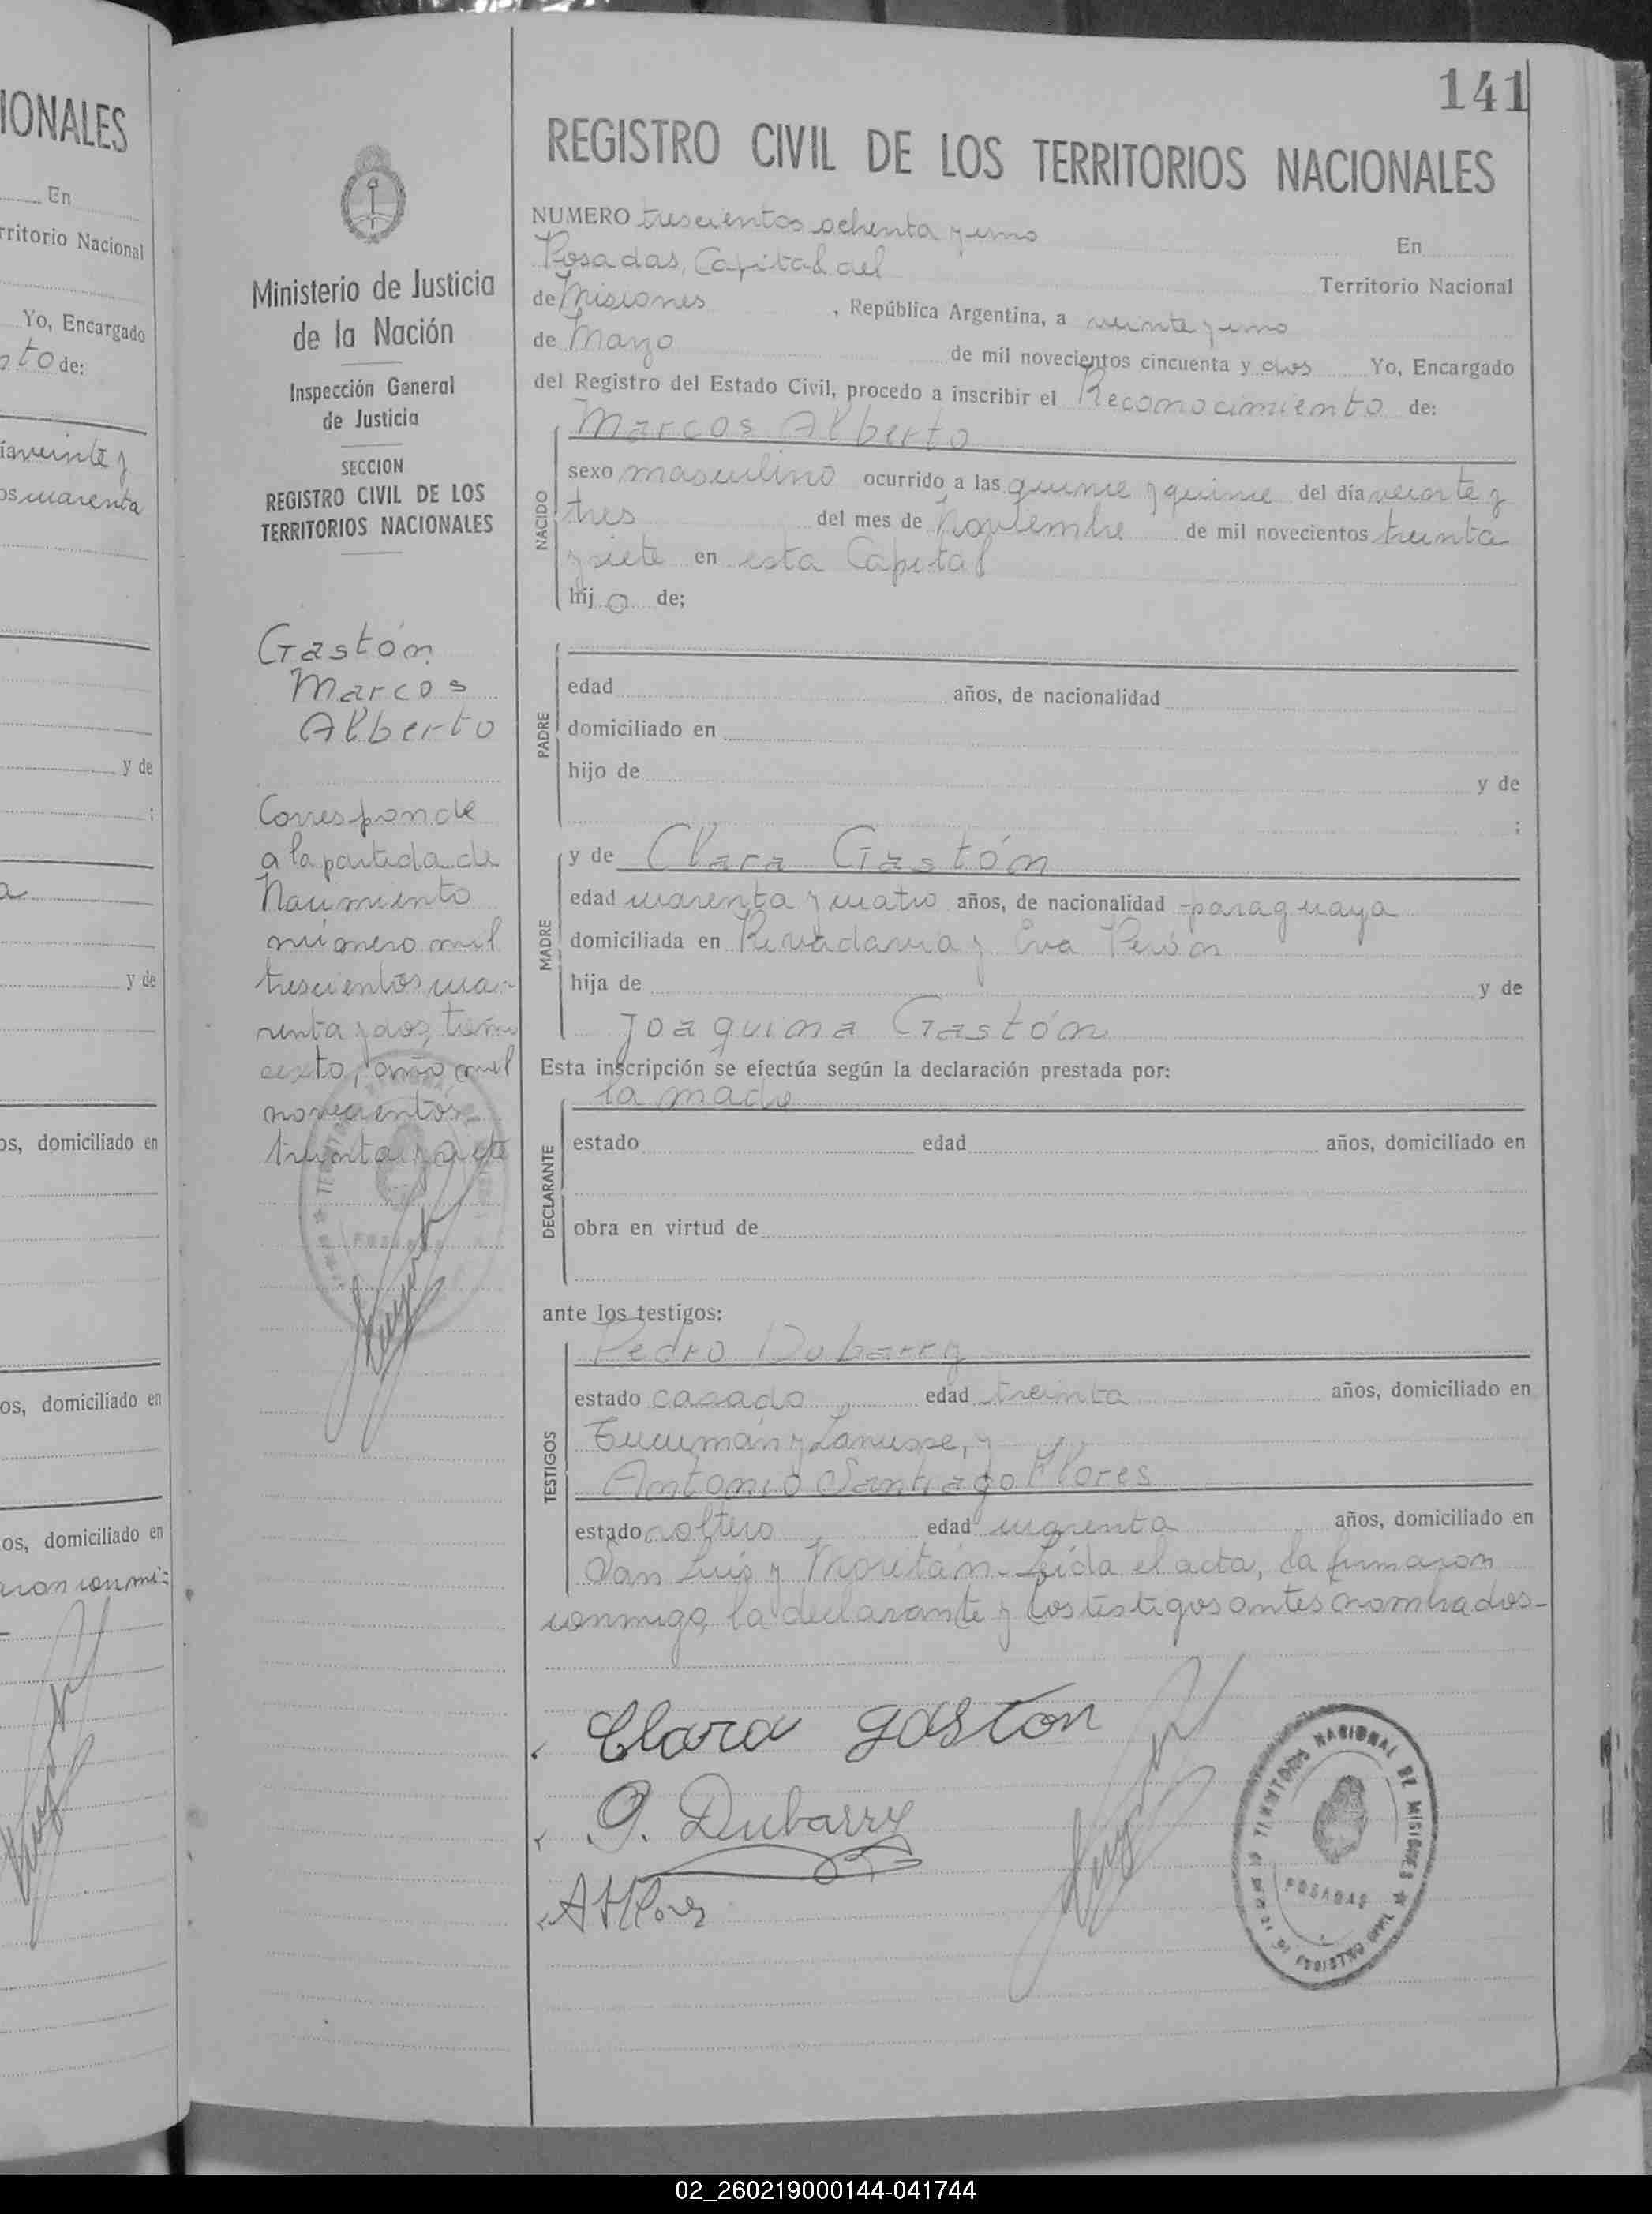 IONALES
En
rritorio Nacional
Yo, Encargado
to de:
veinte y
cuarenta
y de
y de
os, domiciliado en
os, domiciliado en
os, domiciliado en
141
Ministerio de Justicia
de la Nación
Inspección General
de Justicia
SECCION
REGISTRO CIVIL DE LOS
TERRITORIOS NACIONALES
Gastón
Marcos
Alberto
Corresponde
a la partida de
Nacimiento
número mil
trescientos cua-
renta y dos, tomo
sexto, año mil
novecientos
treinta y siete
REGISTRO CIVIL DE LOS TERRITORIOS NACIONALES
NUMERO trescientos ochenta y uno En
Posadas, Capital del Territorio Nacional
de Misiones , República Argentina, a veinte y uno
de Marzo de mil novecientos cincuenta y dos Yo, Encargado
del Registro del Estado Civil, procedo a inscribir el Reconocimiento de:
Marcos Alberto
NACIDO
sexo masculino ocurrido a las quince y quince del día veinte y
tres del mes de Noviembre de mil novecientos treinta
y siete en esta Capital
hijo de;
PADRE
edad años, de nacionalidad
domiciliado en
hijo de y de
;
MADRE
y de Clara Gastón
edad cuarenta y cuatro años, de nacionalidad paraguaya
domiciliada en Rivadavia y Eva Perón
hija de y de
Joaquina Gastón
Esta inscripción se efectúa según la declaración prestada por:
la madre
DECLARANTE
estado edad años, domiciliado en
obra en virtud de
ante los testigos:
TESTIGOS
Pedro Dubarry
estado casado edad treinta años, domiciliado en
Tucumán y Lanusse, y
Antonio Santiago Flores
estado soltero edad cuarenta años, domiciliado en
San Luis y Moritán. Leída el acta, la firmaron
conmigo, la declarante y los testigos antes nombrados-
Clara gaston
P. Dubarry
NACIONAL DE MISIONES
POSADAS
02_260219000144-041744